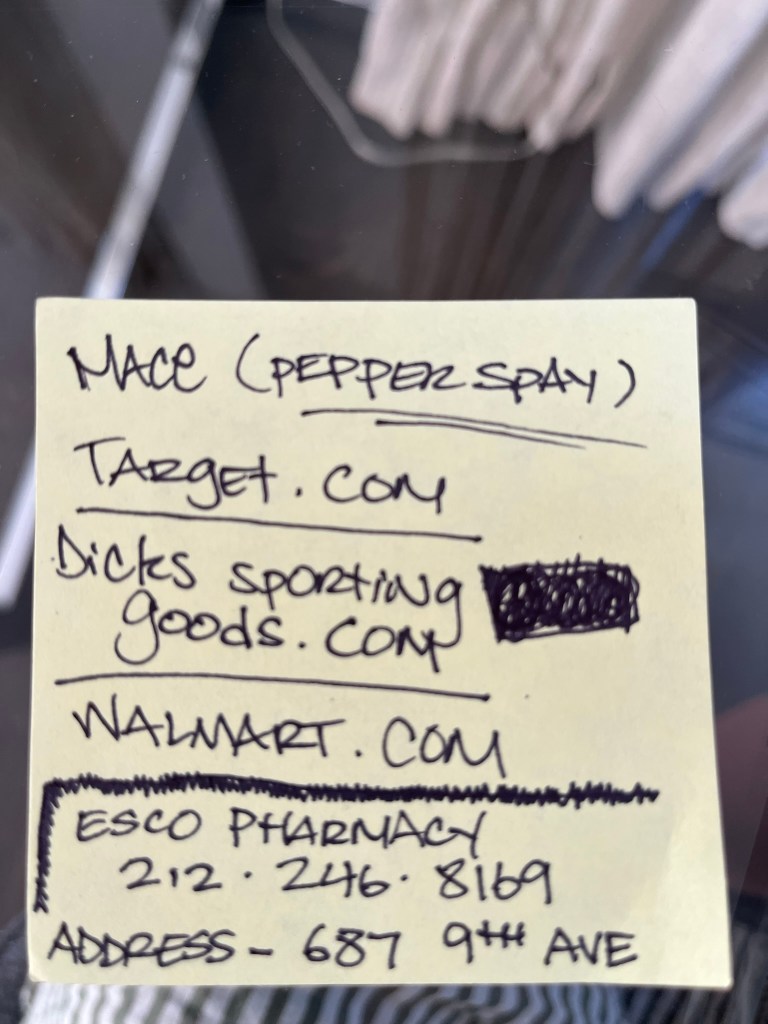 MACe (PEPPER SPAY)
TARgeT. COM
Dicks sporting
goods. COM
WALMART. COM
ESCO PHARMACY
212. 246. 8169
ADDRESS - 687 9TH AVE